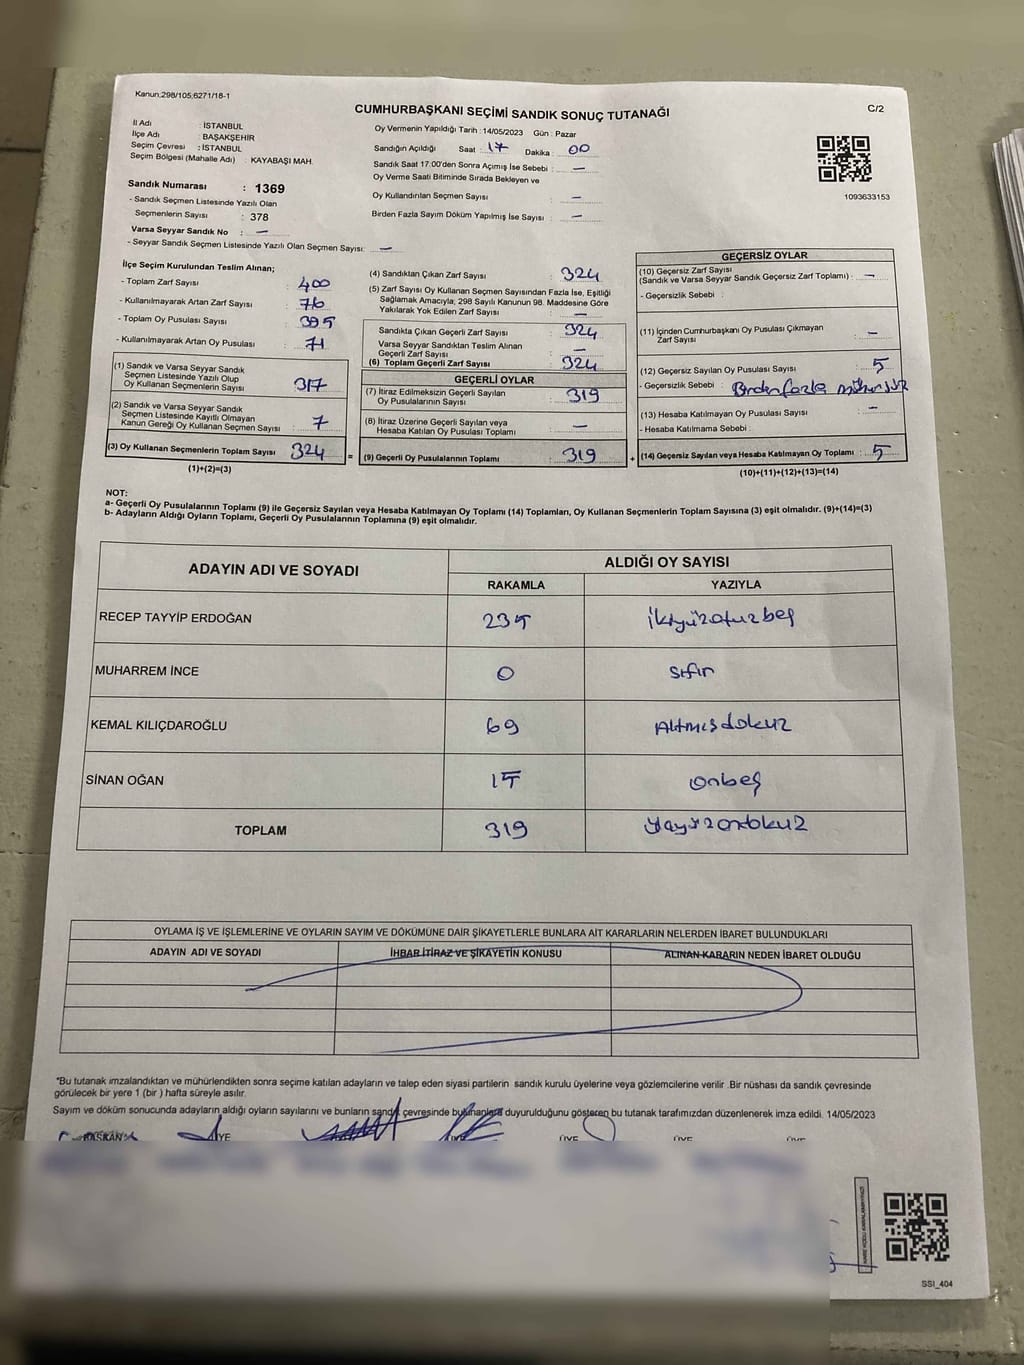 Kanun:298/105;6271/18-1
C/2
CUMHURBAŞKANI SEÇİMİ SANDIK SONUÇ TUTANAĞI
İl Adı : İSTANBUL
İlçe Adı : BAŞAKŞEHİR
Seçim Çevresi : İSTANBUL
Seçim Bölgesi (Mahalle Adı) : KAYABAŞI MAH.
Sandık Numarası : 1369
- Sandık Seçmen Listesinde Yazılı Olan
Seçmenlerin Sayısı : 378
Varsa Seyyar Sandık No : —
- Seyyar Sandık Seçmen Listesinde Yazılı Olan Seçmen Sayısı: —
Oy Vermenin Yapıldığı Tarih : 14/05/2023 Gün : Pazar
Sandığın Açıldığı Saat : 17 Dakika : 00
Sandık Saat 17:00'den Sonra Açımış İse Sebebi : —
Oy Verme Saati Bitiminde Sırada Bekleyen ve
Oy Kullandırılan Seçmen Sayısı : —
Birden Fazla Sayım Döküm Yapılmış İse Sayısı : —
1093633153
İlçe Seçim Kurulundan Teslim Alınan;
- Toplam Zarf Sayısı : 400
- Kullanılmayarak Artan Zarf Sayısı : 76
- Toplam Oy Pusulası Sayısı : 395
- Kullanılmayarak Artan Oy Pusulası : 71
(1) Sandık ve Varsa Seyyar Sandık
Seçmen Listesinde Yazılı Olup
Oy Kullanan Seçmenlerin Sayısı : 317
(2) Sandık ve Varsa Seyyar Sandık
Seçmen Listesinde Kayıtlı Olmayan
Kanun Gereği Oy Kullanan Seçmen Sayısı : 7
(3) Oy Kullanan Seçmenlerin Toplam Sayısı 324
(1)+(2)=(3)
(4) Sandıktan Çıkan Zarf Sayısı : 324
(5) Zarf Sayısı Oy Kullanan Seçmen Sayısından Fazla İse, Eşitliği
Sağlamak Amacıyla; 298 Sayılı Kanunun 98. Maddesine Göre
Yakılarak Yok Edilen Zarf Sayısı : —
Sandıkta Çıkan Geçerli Zarf Sayısı : 324
Varsa Seyyar Sandıktan Teslim Alınan
Geçerli Zarf Sayısı : —
(6) Toplam Geçerli Zarf Sayısı : 324
GEÇERLİ OYLAR
(7) İtiraz Edilmeksizin Geçerli Sayılan
Oy Pusulalarının Sayısı : 319
(8) İtiraz Üzerine Geçerli Sayılan veya
Hesaba Katılan Oy Pusulası Toplamı : —
= (9) Geçerli Oy Pusulalarının Toplamı : 319
GEÇERSİZ OYLAR
(10) Geçersiz Zarf Sayısı
(Sandık ve Varsa Seyyar Sandık Geçersiz Zarf Toplamı) : —
- Geçersizlik Sebebi :
(11) İçinden Cumhurbaşkanı Oy Pusulası Çıkmayan
Zarf Sayısı : —
(12) Geçersiz Sayılan Oy Pusulası Sayısı : 5
- Geçersizlik Sebebi : Birden fazla mühürlük
(13) Hesaba Katılmayan Oy Pusulası Sayısı : —
- Hesaba Katılmama Sebebi :
+ (14) Geçersiz Sayılan veya Hesaba Katılmayan Oy Toplamı : 5
(10)+(11)+(12)+(13)=(14)
NOT:
a- Geçerli Oy Pusulalarının Toplamı (9) ile Geçersiz Sayılan veya Hesaba Katılmayan Oy Toplamı (14) Toplamları, Oy Kullanan Seçmenlerin Toplam Sayısına (3) eşit olmalıdır. (9)+(14)=(3)
b- Adayların Aldığı Oyların Toplamı, Geçerli Oy Pusulalarının Toplamına (9) eşit olmalıdır.
ADAYIN ADI VE SOYADI
ALDIĞI OY SAYISI
RAKAMLA YAZIYLA
RECEP TAYYİP ERDOĞAN 235 ikiyüzotuzbeş
MUHARREM İNCE 0 sıfır
KEMAL KILIÇDAROĞLU 69 Altmışdokuz
SİNAN OĞAN 15 onbeş
TOPLAM 319
OYLAMA İŞ VE İŞLEMLERİNE VE OYLARIN SAYIM VE DÖKÜMÜNE DAİR ŞİKAYETLERLE BUNLARA AİT KARARLARIN NELERDEN İBARET BULUNDUKLARI
ADAYIN ADI VE SOYADI İHBAR İTİRAZ VE ŞİKAYETİN KONUSU ALINAN KARARIN NEDEN İBARET OLDUĞU
*Bu tutanak imzalandıktan ve mühürlendikten sonra seçime katılan adayların ve talep eden siyasi partilerin sandık kurulu üyelerine veya gözlemcilerine verilir .Bir nüshası da sandık çevresinde
görülecek bir yere 1 (bir ) hafta süreyle asılır.
Sayım ve döküm sonucunda adayların aldığı oyların sayılarını ve bunların sandık çevresinde bulunanlara duyurulduğunu gösteren bu tutanak tarafımızdan düzenlenerek imza edildi. 14/05/2023
BAŞKAN ÜYE ÜYE ÜYE ÜYE ÜYE
SSI_404